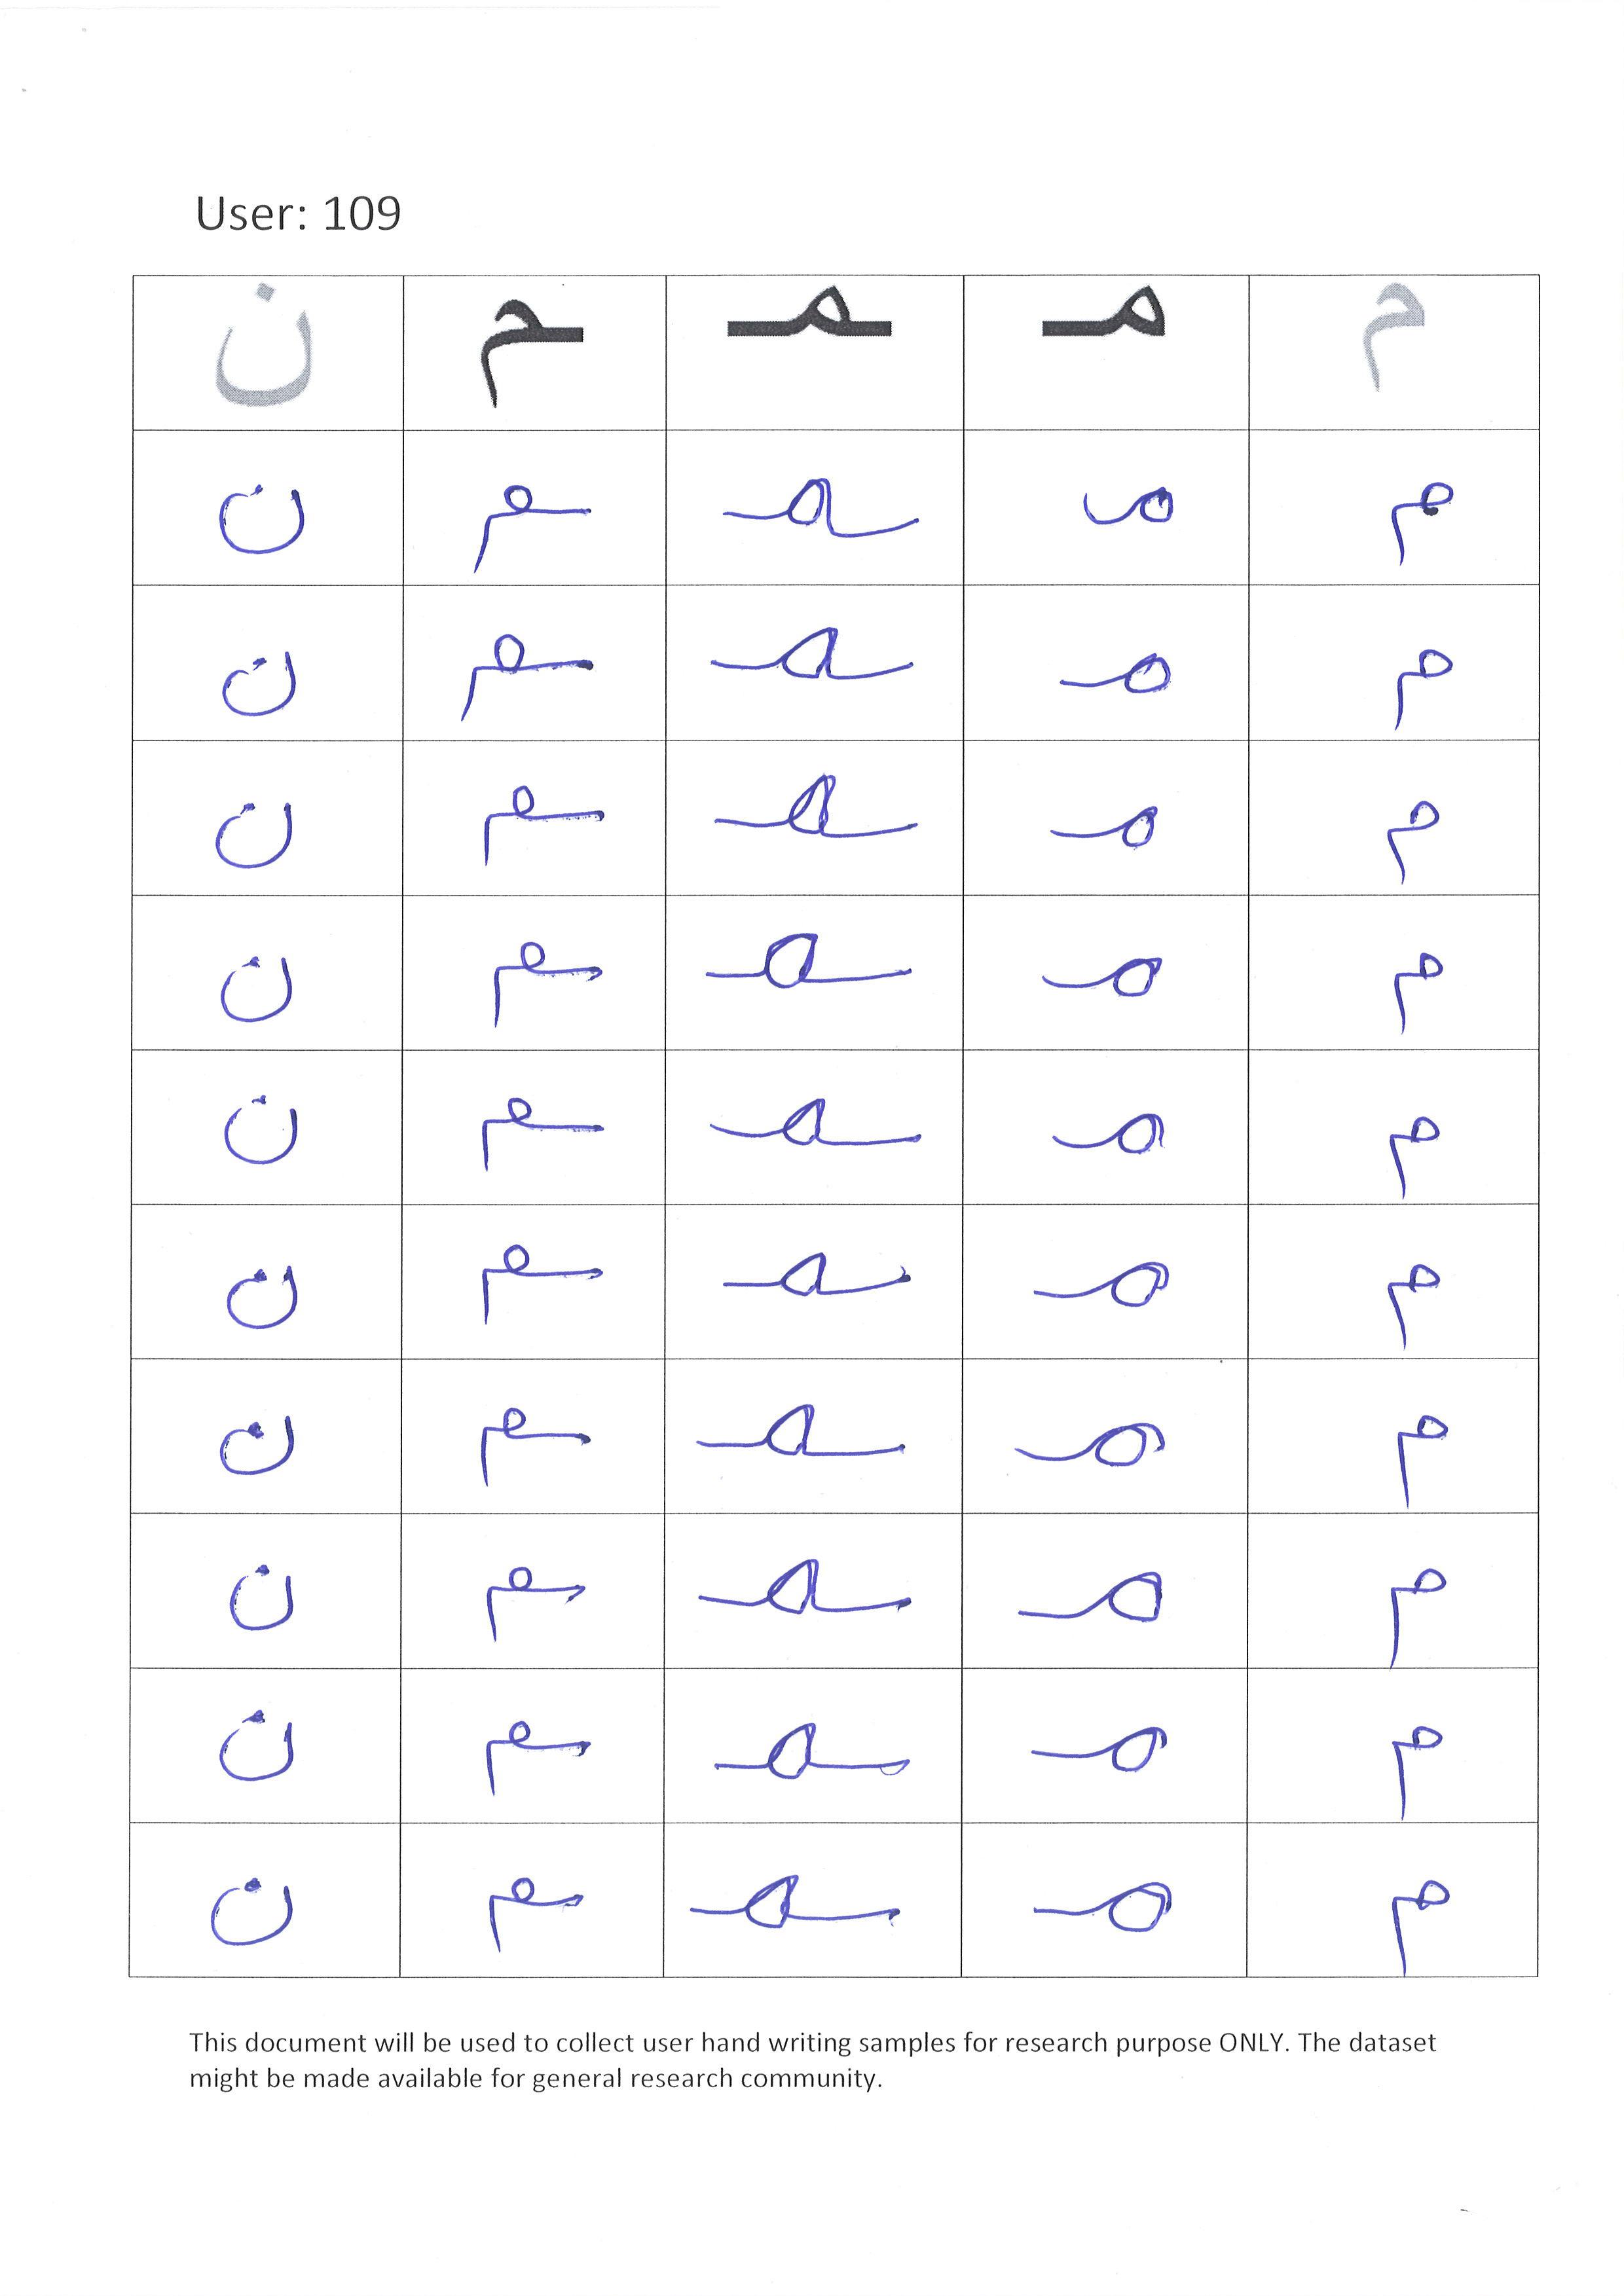 User: 109
م مـ ـمـ ـم ن
م مـ ـمـ ـم ن
م مـ ـمـ ـم ن
م مـ ـمـ ـم ن
م مـ ـمـ ـم ن
م مـ ـمـ ـم ن
م مـ ـمـ ـم ن
م مـ ـمـ ـم ن
م مـ ـمـ ـم ن
م مـ ـمـ ـم ن
م مـ ـمـ ـم ن
This document will be used to collect user hand writing samples for research purpose ONLY. The dataset
might be made available for general research community.